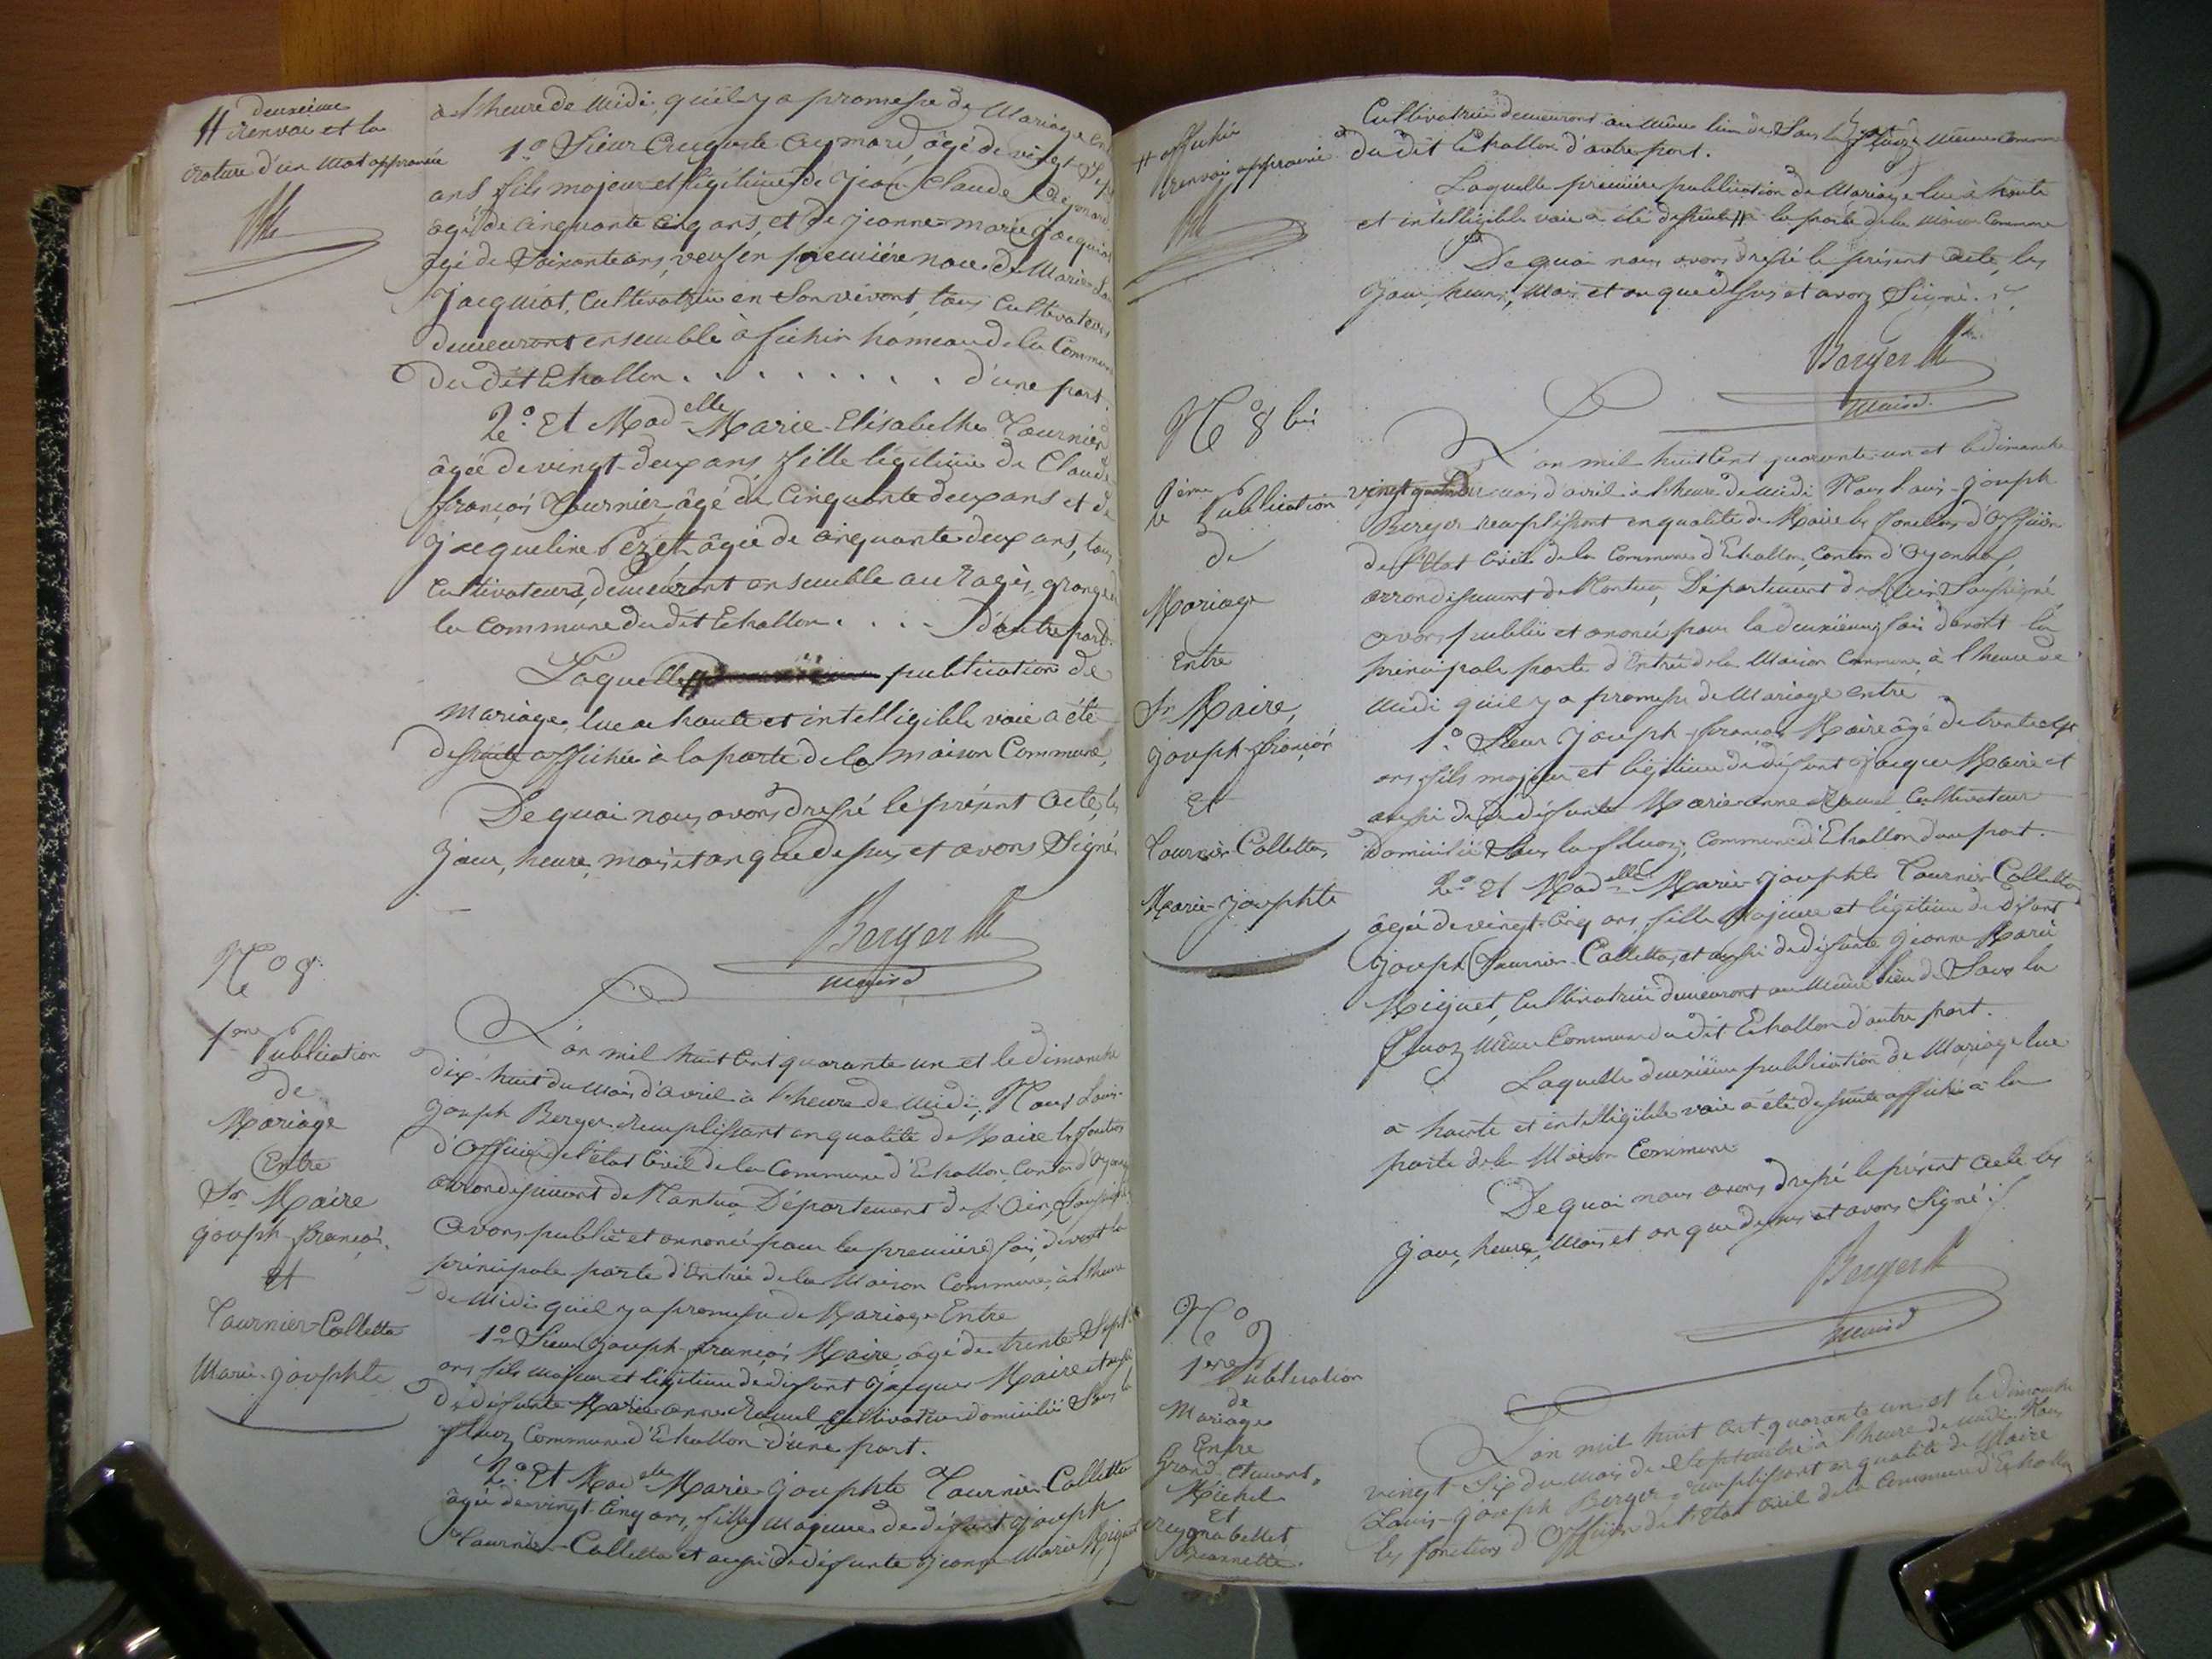 # deuxième
renvoi et la
rature d'un mot approuvée
à l'heure de Midi, qu'il y a promesse de Mariage entre
1.° Sieur Auguste Aymard, âgé de vingt-sept
ans fils majeur et légitime de Jean Claude Aymard
âgé de cinquante cinq ans, et de jeanne-marie jacquiot
âgé de soixante ans, veuf en première noce de Marie
Jacquiot, cultivatrice en son vivant, tous cultivateurs
demeurant ensemble à hameau de la Commune
du dit Echallon . . . . . . . . d'une part.
2.° Et Madelle Marie-Elisabethe Tournier
âgée de vingt-deux ans, fille légitime de Claude
françois Tournier âgé de cinquante deux ans et de
jacqueline Pézet, âgée de cinquante deux ans, tous
cultivateurs, demeurant ensemble au grange de
la commune du dit Echallon . . . . d'autre part.
Laquelle # publication de
mariage, lue a haute et intelligible voie a été
desuite affichée à la porte de la maison Commune,
De quoi nous avons dressé le présent acte, les
jour, heure, mois et an que dessus et avons Signé.
Berger
maire
N.° 8.
1ère Publication
de
Mariage
Entre
Sr Maire
joseph-françois.
et
Tournier-Colletta
Marie-josephte
L'an mil huit cent quarante un et le dimanche
dix-huit du mois d'avril à l'heure de midi, Nous Louis-
joseph Berger remplissant en qualité de Maire les fonctions
d'officier de l'état civil de la Commune d'Echallon, Canton d'Oyonnax
arrondissement de Nantua, Département de l'Ain, soussigné
avons publié et annoncé pour la première fois, devant la
principale porte d'Entrée de la Maison Commune, à l'heure
de Midi qu'il y a promesse de Mariage Entre
1.° Sieur joseph-françois Maire, âgé de trente-sept
ans fils majeur et légitime de défunt jacques Maire et aussi
de défunte Marie-anne cultivateur domicilié Sous la
fluoz Commune d'Echallon d'une part.
2.° Et Madelle Marie-josephte Tournier-Colletta
âgée de vingt-cinq ans, fille majeure de défunt joseph
Tournier-Colletta et aussi de défunte jeanne Marie Miguet
# affichée
renvoi approuvé
Cultivatrice demeurant au même lieu de Sous la fluoz même Commune
du dit Echallon d'autre part.
Laquelle première publication de Mariage lue à haute
et intelligible voie a été desuite # à la porte de la Maison Commune
De quoi nous avons dressé le présent acte, les
jour, heure, mois et an que dessus et avons Signé.
Berger
maire
N.° 8 bis
2ème Publication
de
Mariage
Entre
Sr Maire,
joseph-françois
Et
Tournier-Colletta,
Marie-josephte
L'an mil huit cent quarante-un et le dimanche
vingt du mois d'avril à l'heure de midi Nous Louis-joseph
Berger remplissant en qualité de Maire les fonctions d'officier
de l'état civil de la Commune d'Echallon, Canton d'Oyonnax,
arrondissement de Nantua, Département de l'Ain Soussigné,
avons publié et annoncé pour la deuxième fois devant la
principale porte d'Entrée de la Maison Commune à l'heure de
midi qu'il y a promesse de Mariage entre
1.° Sieur joseph-françois Maire âgé de trente sept
ans fils majeur et légitime de défunt jacques Maire et
aussi de défunte Marie-anne cultivateur
domicilié Sous la fluoz, Commune d'Echallon d'une part.
2.° Et Madelle Marie-josephte Tournier-Colletta
âgée de vingt-cinq ans, fille majeure et légitime de défunt
joseph Tournier-Colletta, et aussi de défunte jeanne Marie
Miguet, Cultivatrice demeurant au même lieu de Sous la
fluoz même Commune du dit Echallon d'autre part.
Laquelle deuxième publication de Mariage lue
a haute et intelligible voie a été desuite affichée à la
porte de la Maison Commune
De quoi nous avons dressé le présent acte les
jour, heure, mois et an que dessus et avons Signé.
Berger
maire
N.° 9
1ère Publication
de
Mariage
Entre
Grand-Clément,
Michel
Et
Jeannette.
L'an mil huit cent quarante un et le dimanche
vingt Six du mois de Septembre à l'heure de midi, Nous
Louis-joseph Berger, remplissant en qualité de Maire
les fonctions d'officier de l'état civil de la Commune d'Echallon